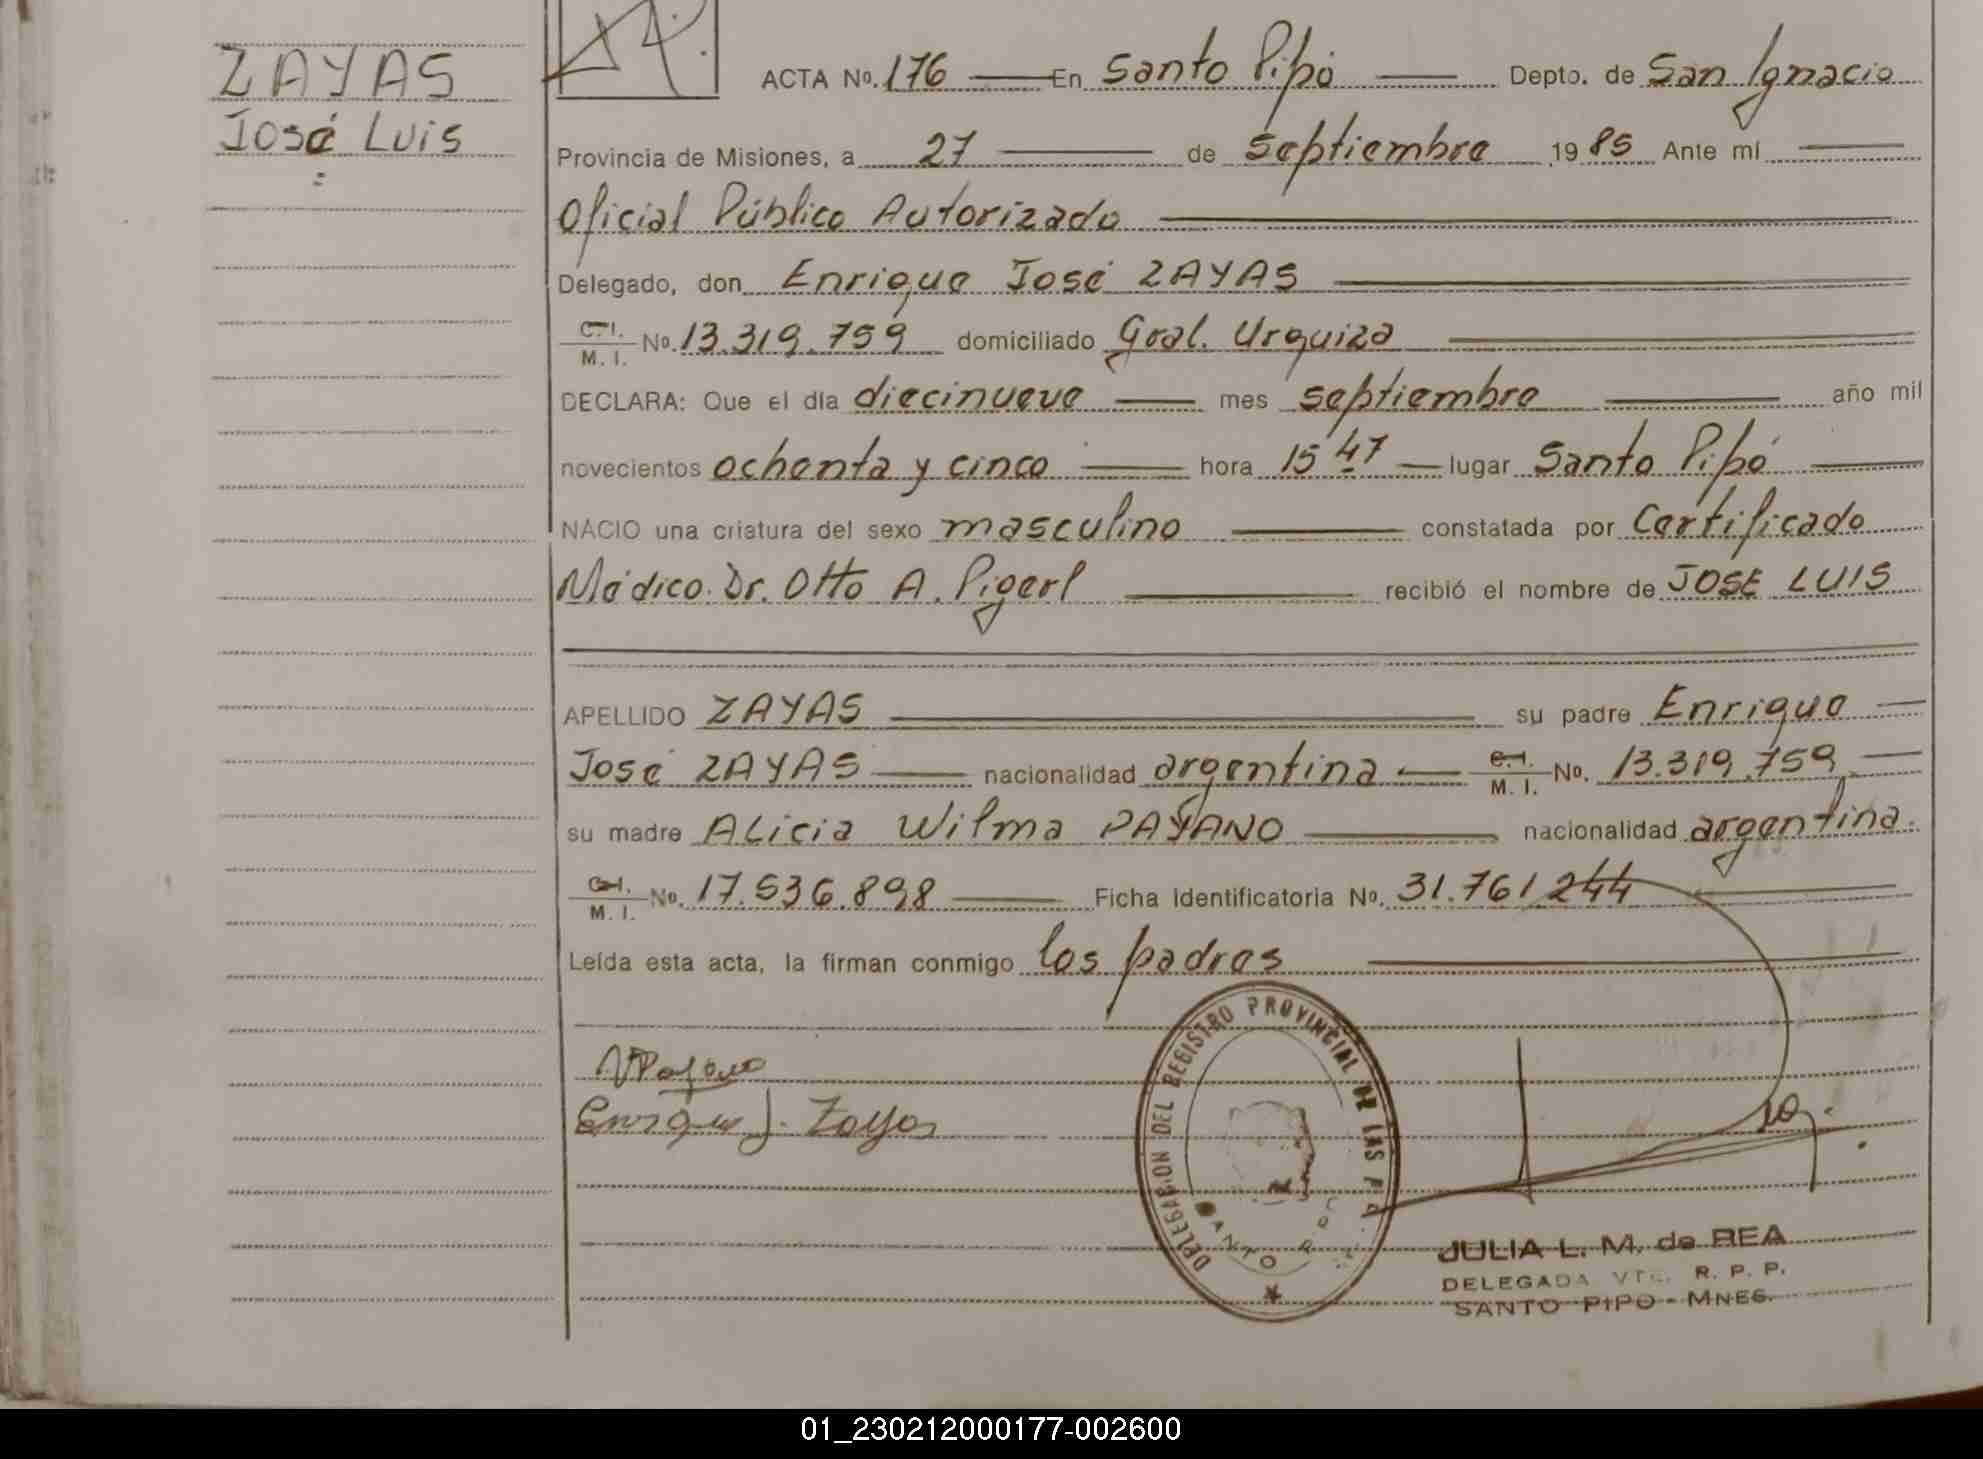 ZAYAS
José Luis
ACTA Nº. 176 En Santo Pipó Depto. de San Ignacio
Provincia de Misiones, a 27 de septiembre 19 85 Ante mí
Oficial Público Autorizado
Delegado, don Enrique José ZAYAS
C. I.
M. I. Nº. 13.319.759 domiciliado Gral. Urquiza
DECLARA: Que el día diecinueve mes septiembre año mil
novecientos ochenta y cinco hora 15 47 lugar Santo Pipó
NACIO una criatura del sexo masculino constatada por Certificado
Médico. Dr. Otto A. Pigerl recibió el nombre de JOSE LUIS
APELLIDO ZAYAS su padre Enrique
José ZAYAS nacionalidad argentina C. I.
M. I. Nº. 13.319.759
su madre ALicia Wilma PAYANO nacionalidad argentina.
C. I.
M. I. Nº. 17.536.898 Ficha Identificatoria Nº. 31.761.244
Leída esta acta, la firman conmigo los padres
Enrique J. Zayas
DELEGACION DEL REGISTRO PROVINCIAL DE LAS
SANTO
JULIA L. M. de REA
DELEGADA R. P. P.
SANTO PIPO - MNES.
01_230212000177-002600